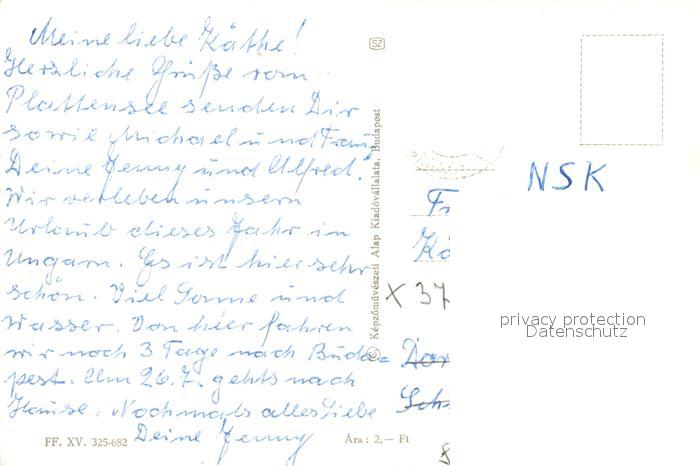 Meine liebe Käthe!
Herzliche Grüße vom
Plattensee senden Dir
sowie Michael und Frau,
Deine Jenny und Alfred!
Wir verleben unsern
Urlaub dieses Jahr in
Ungarn. Es ist hier sehr
schön. Viel Sonne und
Wasser. Von hier fahren
wir noch 3 Tage nach Buda=
pest. Am 26.7. gehts nach
Hause. Nochmals alles Liebe
Deine Jenny
FF. XV. 325-682
Ára: 2,— Ft
SZ
© Képzőművészeti Alap Kiadóvállalata, Budapest
NSK
Fr
Kä
X 37
privacy protection
Datenschutz
Dor
Sch